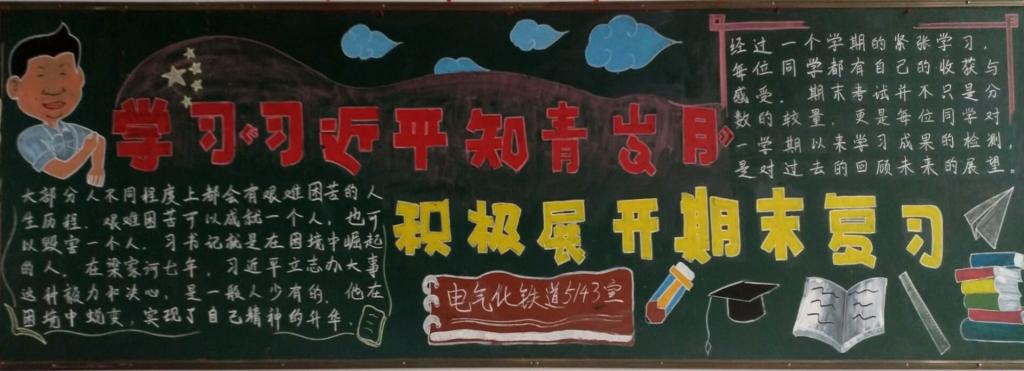 学习《习近平知青岁月》
大部分人不同程度上都会有艰难困苦的人
生历程。艰难困苦可以成就一个人，也可
以毁坏一个人。习书记就是在困境中崛起
的人。在梁家河七年，习近平立志办大事
这种毅力和决心，是一般人少有的。他在
困境中蜕变，实现了自己精神的升华。
经过一个学期的紧张学习，
每位同学都有自己的收获与
感受。期末考试并不只是分
数的较量，更是每位同学对
一学期以来学习成果的检测，
是对过去的回顾未来的展望。
积极展开期末复习
电气化铁道5143宣